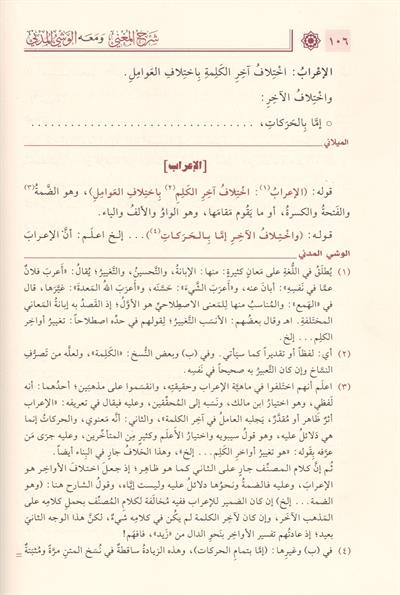 ١٠٦ شرح المغني ومعه الوشي المدني
الإعْرابُ: اخْتِلافُ آخِرِ الكَلِمةِ بِاختِلافِ العَوامِلِ.
واخْتِلافُ الآخِرِ:
○ إمّا بِالحَرَكاتِ، ................................
الميلاني
[الإعراب]
قوله: (الإعرابُ(١): اختِلافُ آخِرِ الكَلِمِ(٢) بِاختِلافِ العَوامِلِ)، وهو الضمةُ(٣)
والفَتحةُ والكسرةُ، أو ما يَقُوم مَقامَها، وهو الواوُ والألفُ والياء.
قوله: (واخْتِلافُ الآخِرِ إمّا بِالحَرَكاتِ(٤)) ... إلخ اعلَم: أنَّ الإعرابَ
الوشي المدني
(١) يُطلَقُ في اللُّغةِ على مَعانٍ كثيرةٍ: منها: الإبانةُ، والتَّحسينُ، والتَّغييرُ؛ يُقالُ: «أَعرَبَ فلانٌ
عمّا في نَفسِهِ»: أبانَ عنه، و«أَعرَبَ الشَّيءَ»: حَسَّنَه، و«أَعرَبَ اللهُ المَعدةَ»: غَيَّرَها، قال
في «الهَمع»: والمُناسبُ منها للمَعنى الاصطلاحيِّ هو الأوَّلُ؛ إذ القَصدُ به إبانةُ المعاني
المختلفة. اهـ وقال بعضُهم: الأنسَبُ التَّغييرُ؛ لقولهم في حدِّه اصطلاحاً: تغييرُ أواخِرِ
الكَلِم... إلخ.
(٢) أي: لفظاً أو تقديراً كما سيأتي. وفي (ب) وبعض النُّسخ: «الكَلِمة»، ولعلَّه من تَصرُّفِ
النسّاخ وإن كان التَّعبيرُ به صحيحاً في نَفسِه.
(٣) اعلَم أنهم اختلَفوا في ماهيَّةِ الإعراب وحقيقتِه، وانقسَموا على مذهبَينِ؛ أحدُهما: أنه
لَفظي، وهو اختيارُ ابن مالك، ونسَبه إلى المُحقِّقين، وعليه فيقال في تعريفه: «الإعرابُ
أثرٌ ظاهر أو مُقدَّرٌ، يَجلِبه العاملُ في آخِر الكلمة»، والثاني: أنَّه معنوي، والحركاتُ إنما
هي دَلائلُ عليه، وهو قولُ سيبويه واختيارُ الأعلَم وكثيرٍ مِن المتأخِّرين، وعليه جرَى مَن
عرَّفه بقَولِه: «هو تغييرُ أواخِر الكَلِم ... إلخ»، وهذا الخلافُ جارٍ في البِناء أيضاً.
ثم إن كلام المصنِّف جارٍ على الثاني كما هو ظاهِر؛ إذ جعل اختلافَ الأواخِر هو
الإعرابَ، وعليه فالضمةُ ونحوُها دلائلُ عليه وليست إيّاه، وقولُ الشارح هنا: (وهو
الضمة ... إلخ) إن كان الضمير للإعراب ففيه مُخالَفة لكلام المُصنِّف بحمل كلامِه على
المَذهب الآخَر، وإن كان لآخِر الكلمة لم يكُن في كلامِه شيءٌ، لكنَّ هذا الوجه الثانيَ
بعيد؛ إذ عادتُهم تفسير الأواخِرِ بنَحوِ الدال من «زَيد»، فافهَم!
(٤) في (ب) وغيرِها: (إمّا بتَمامِ الحركات)، وهذه الزيادةُ ساقطةٌ في نُسَخ المتنِ مرَّةً ومُثبَتةٌ =